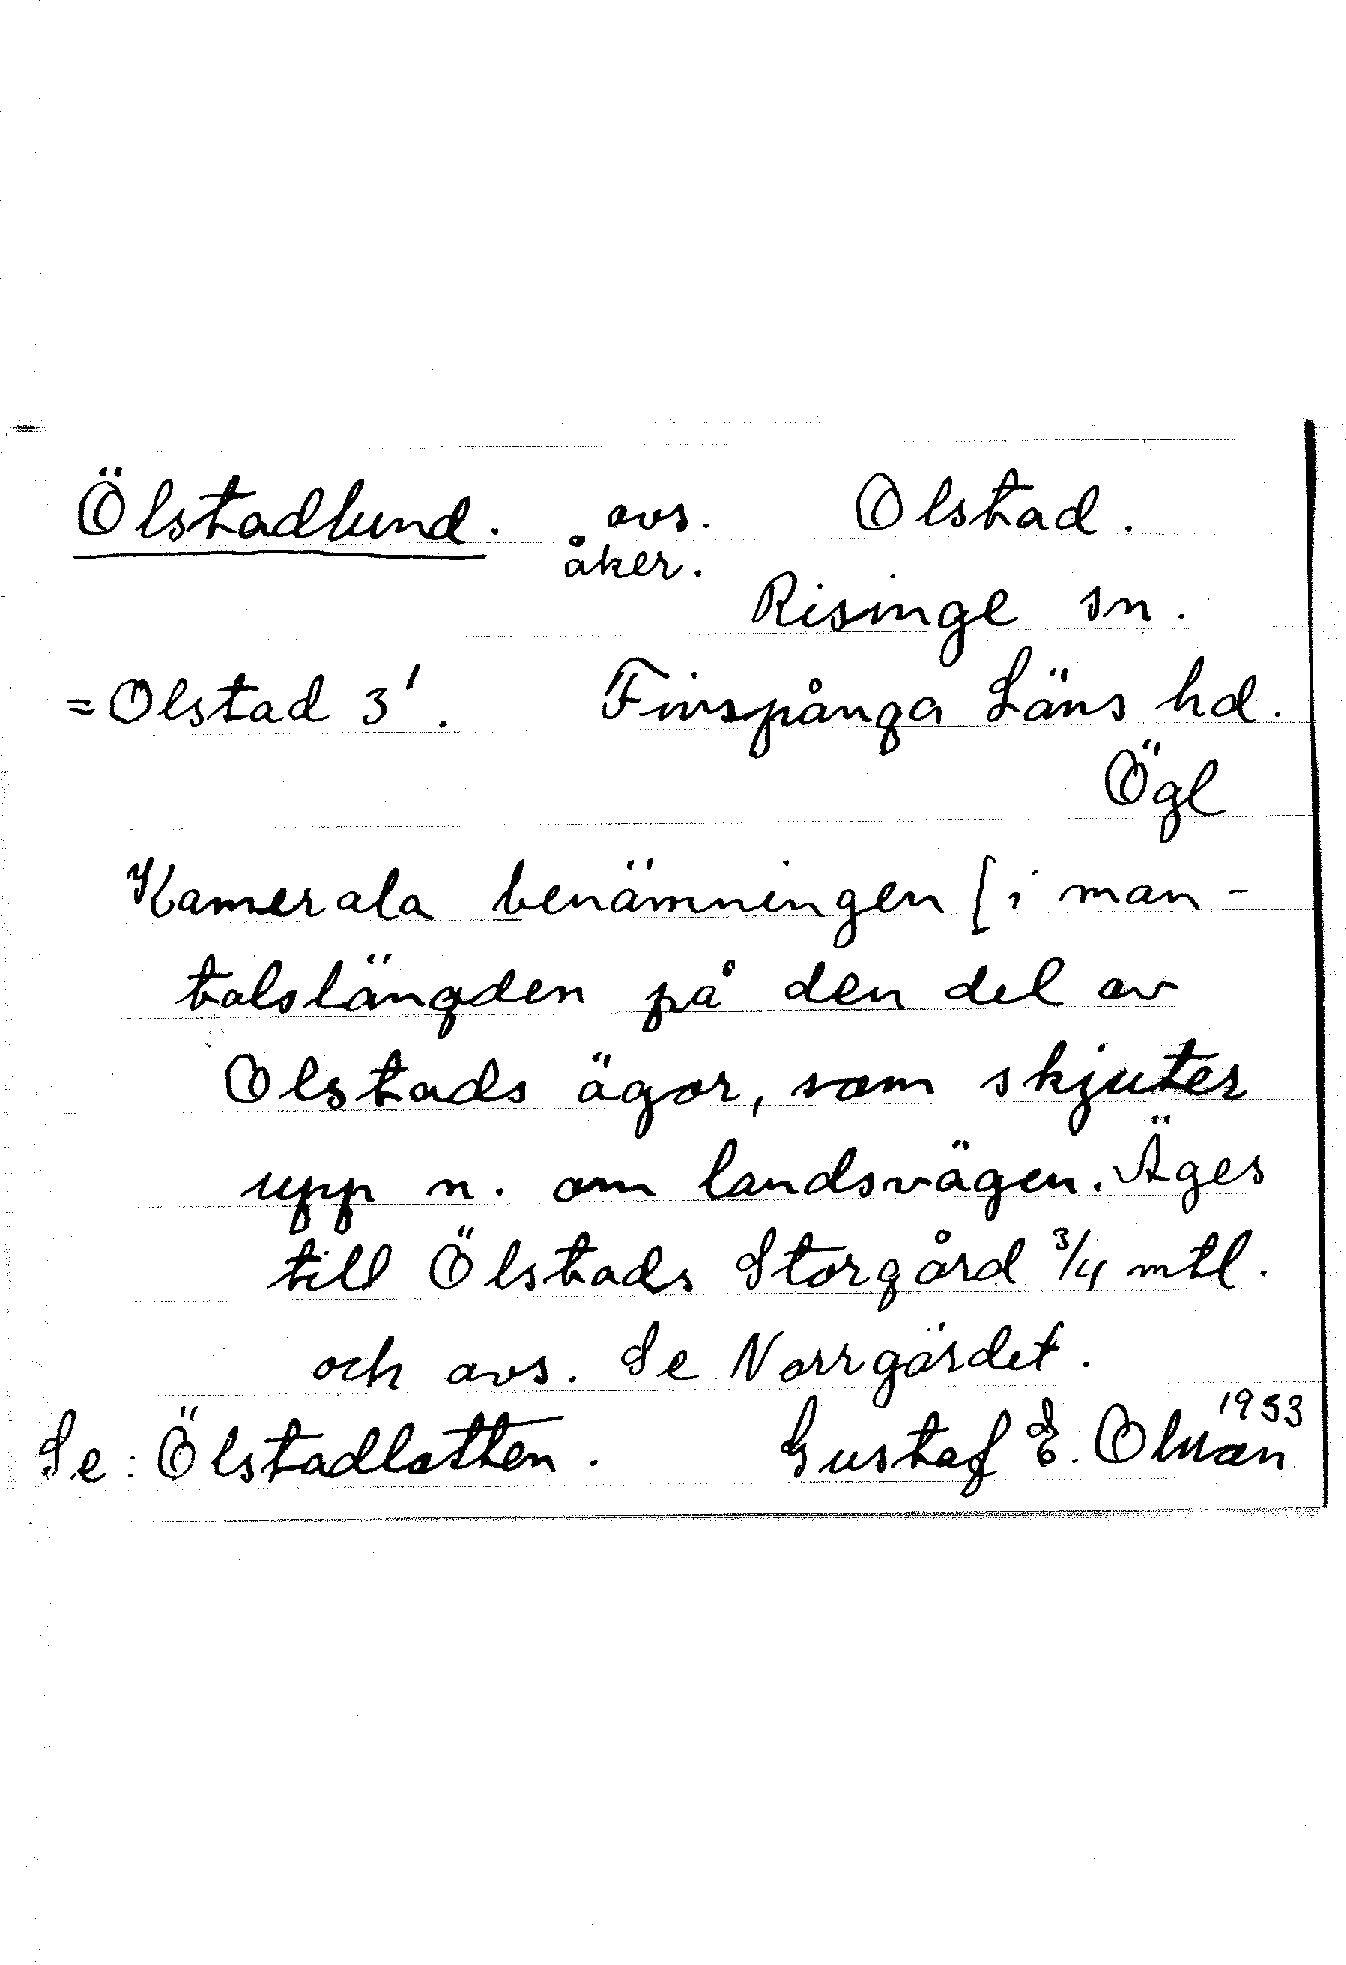 Ölstadlund. avs. Olstad.
åker.
Risinge sn.
=Olstad 3¹. Finspånga Läns hd.
Ögl
Kamerala benämningen [i man-
talslängden på den del av
Olstads ägor, som skjuter
upp n. om landsvägen. Äges
till Ölstads Storgård 3/4 mtl.
och avs. Se Norrgärdet.
1953
Se: Ölstadlotten. Gustaf E.